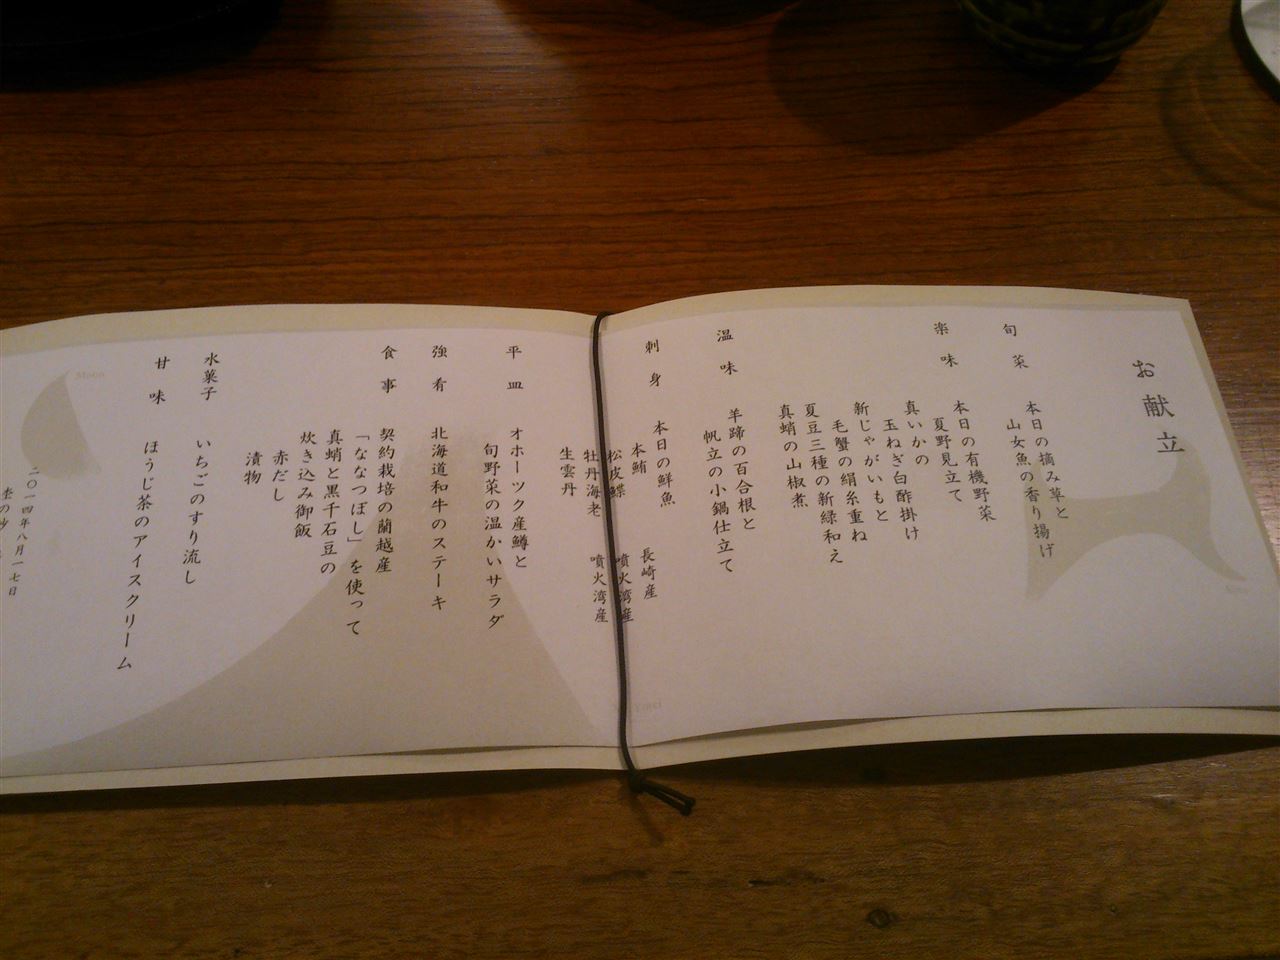 お献立
旬菜
本日の摘み草と
山女魚の香り揚げ
楽味
本日の有機野菜
夏野見立て
真いかの
玉ねぎ白酢掛け
新じゃがいもと
毛蟹の絹糸重ね
夏豆三種の新緑和え
真蛸の山椒煮
温味
羊蹄の百合根と
帆立の小鍋仕立て
刺身
本日の鮮魚
本鮪 長崎産
松皮鰈 噴火湾産
牡丹海老 噴火湾産
生雲丹
平皿
オホーツク産鱒と
旬野菜の温かいサラダ
強肴
北海道和牛のステーキ
食事
契約栽培の蘭越産
「ななつぼし」を使って
真蛸と黒千石豆の
炊き込み御飯
赤だし
漬物
水菓子
いちごのすり流し
甘味
ほうじ茶のアイスクリーム
二〇一四年八月一七日
Moon